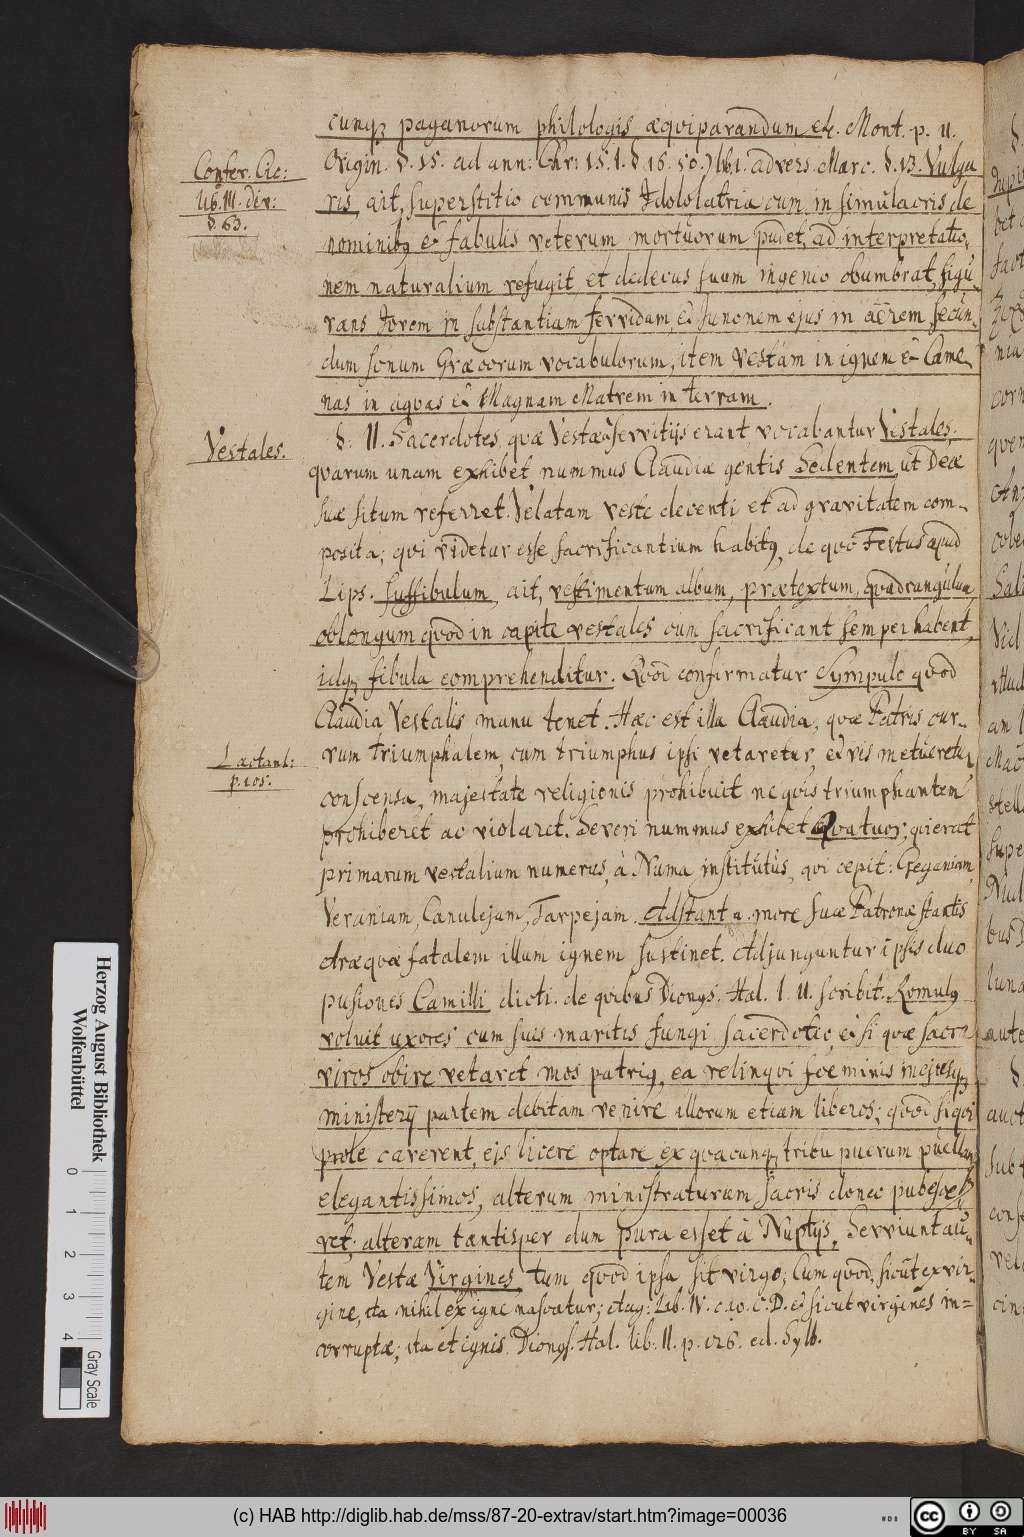 cunqꝫ paganorum philologis æqviparandum etc. Mont. p. 11.
Origin. §. 15. ad ann: Chr: 151. § 16. 50.) lib1. advers. Marc. §. 13. Vulga
Confer. Cic:
lib. III. div:
§. 63.
ris, ait, superstitio communis Idololatriæ cum in simulacris de
nominibꝫ et fabulis veterum mortuorum pudet, ad interpretatio-
nem naturalium refugit et dedecus suum ingenio obumbrat, figu-
rans Jovem in substantiam fervidam et Junonem ejus in aërem secun-
dum sonum Græcorum vocabulorum, item Vestam in ignem et Came
nas in aqvas et Magnam Matrem in terram.
Vestales.
§. 11. Sacerdotes, quæ Vestæ servitijs erant, vocabantur Vestales,
quarum unam exhibet nummus Claudiæ gentis Sedentem, ut Deæ
suæ situm referret. Velatam veste decenti et ad gravitatem com-
posita; qvi videtur esse sacrificantium habitꝫ, de quo Festus apud
Lips. Suffibulum, ait, vestimentum album, prætextum, quadrangulum,
oblongum quod in capite vestales cum sacrificant semper habent,
idqꝫ fibula comprehenditur. Quod confirmatur Sympulo quod
Claudia Vestalis manu tenet. Hæc est illa Claudia, quæ Patris cur-
Lactant:
p. 105.
rum triumphalem, cum triumphus ipsi vetaretur, et vis metueretur
conscensa, majestate religionis prohibuit ne qvis triumphantem
prohiberet ac violaret. Severi nummus exhibet Qvatuor; qvi erat
primarum vestalium numerus, à Numa institutus, qvi cepit: Geganiam,
Veraniam, Canulejam, Tarpejam. Adstant a more suæ Patronæ stantis
Aræ quæ fatalem illum ignem sustinet. Adjunguntur ipsis duo
pusiones Camilli dicti. de qvibus Dionys. Hal. l. II. scribit. Romulꝫ
voluit uxores cum suis maritis fungi sacerdotio, et si quæ sacra
viros obire vetaret mos patriꝫ, ea relinqvi foeminis in ejusqꝫ
ministerij partem debitam venire illorum etiam liberos; quod si qvi
prole carerent, ejs licere optare ex quacunqꝫ tribu puerum puellam
elegantissimos, alterum ministraturum sacris donec pubesce-
ret; alteram tantisper dum pura esset à Nuptijs. Serviunt au-
tem Vestæ Virgines, tum quod ipsa sit virgo; Cum quod, sicut ex vir-
gine, ita nihil ex igne nascatur; Aug: Lib. IV. c. 10. C. D. et sicut virgines in=
corruptæ, ita et ignis. Dionys. Hal. lib. II. p. 126. ed. Sylb.
Herzog August Bibliothek
Wolfenbüttel
0 1 2 3 4
Gray Scale
(c) HAB http://diglib.hab.de/mss/87-20-extrav/start.htm?image=00036
cc BY SA